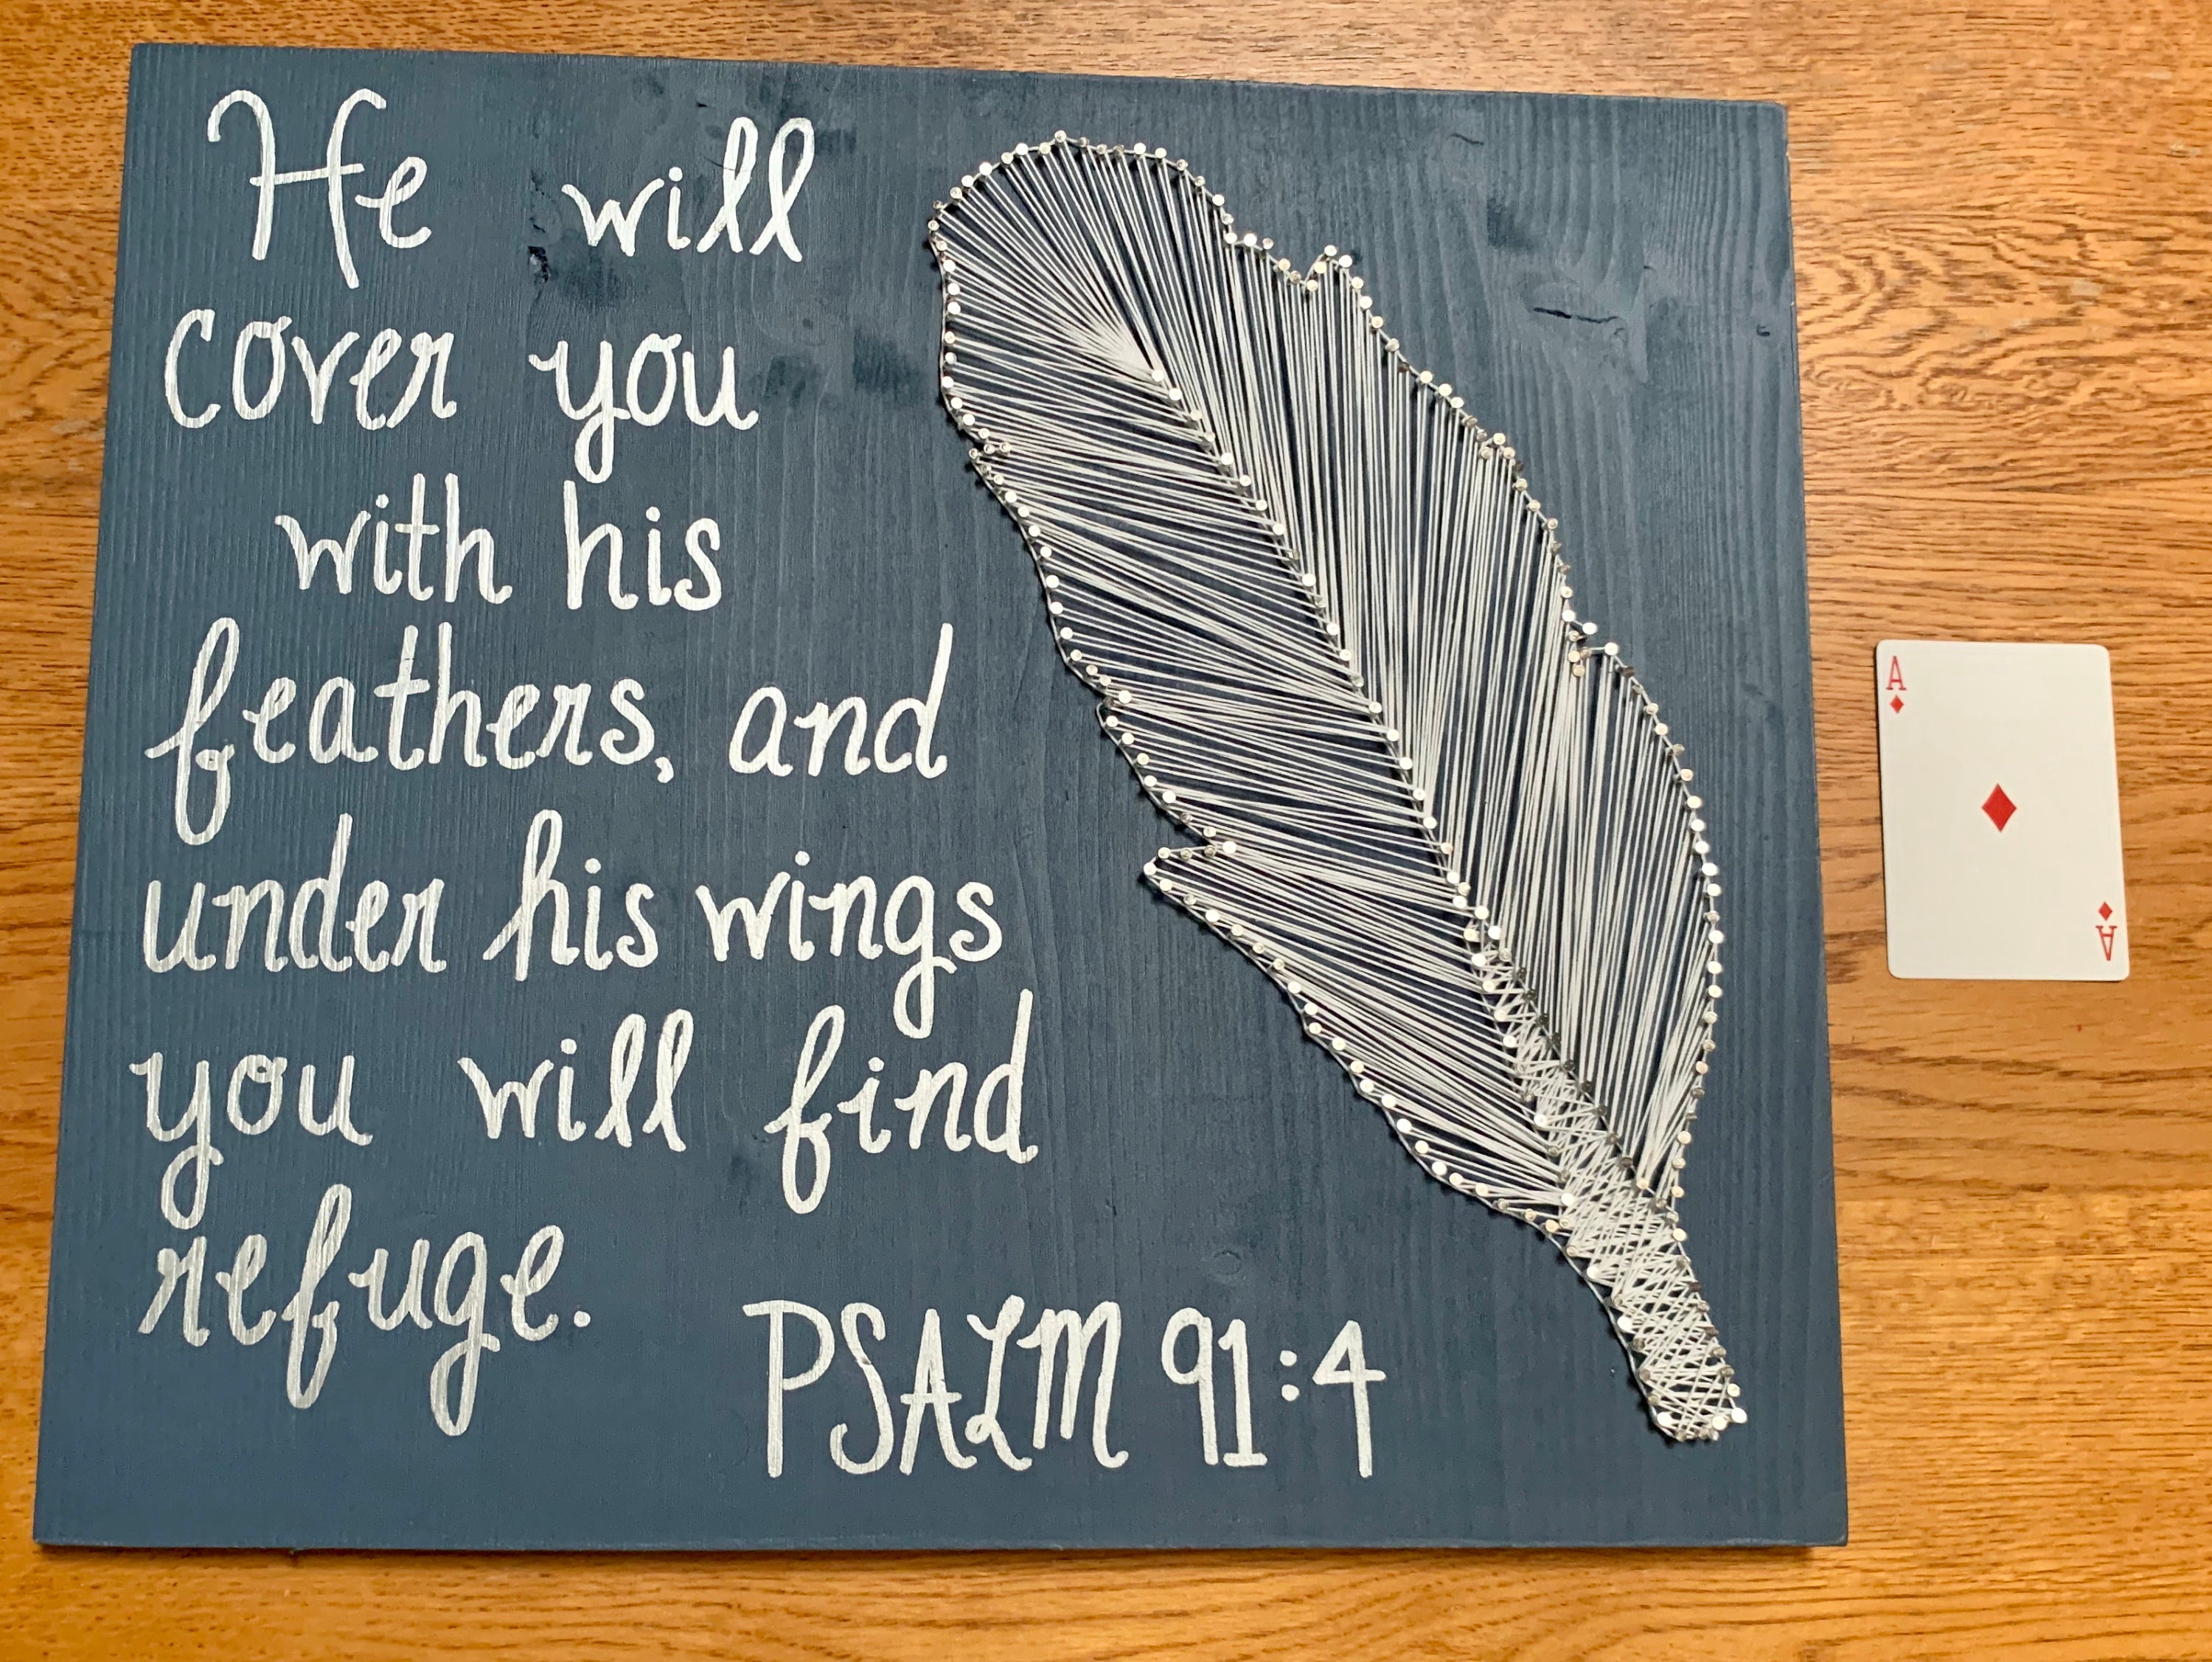 He will
cover you
with his
feathers, and
under his wings
you will find
refuge.
PSALM 91:4
A
A